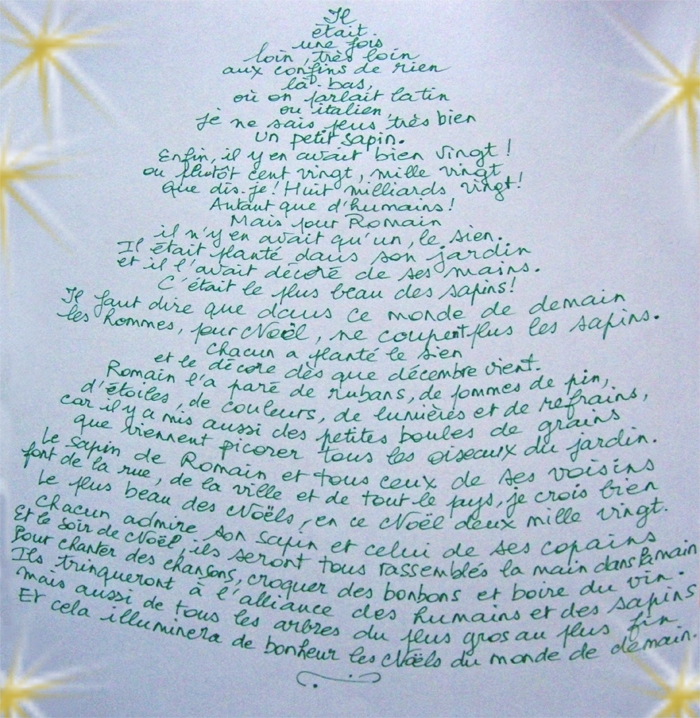 Il
était
une fois
loin, très loin
aux confins de rien
là-bas,
où on parlait latin
ou italien,
je ne sais plus très bien
un petit sapin.
Enfin, il y en avait bien vingt !
ou plutôt cent vingt, mille vingt,
que dis-je ! Huit milliards vingt !
Autant que d'humains !
Mais pour Romain
il n'y en avait qu'un, le sien.
Il était planté dans son jardin
et il l'avait décoré de ses mains.
C'était le plus beau des sapins !
Il faut dire que dans ce monde de demain
les hommes, pour Noël, ne coupent plus les sapins.
Chacun a planté le sien
et le décore dès que décembre vient.
Romain l'a paré de rubans, de pommes de pin,
d'étoiles, de couleurs, de lumières et de refrains,
car il y a mis aussi des petites boules de grains
que viennent picorer tous les oiseaux du jardin.
Le sapin de Romain et tous ceux de ses voisins
font de la rue, de la ville et de tout le pays, je crois bien
le plus beau des Noëls, en ce Noël deux mille vingt.
Chacun admire son sapin et celui de ses copains
Et le soir de Noël, ils seront tous rassemblés la main dans la main
Pour chanter des chansons, croquer des bonbons et boire du vin.
Ils trinqueront à l'alliance des humains et des sapins
mais aussi de tous les arbres du plus gros au plus fin
Et cela illuminera de bonheur les Noëls du monde de demain.